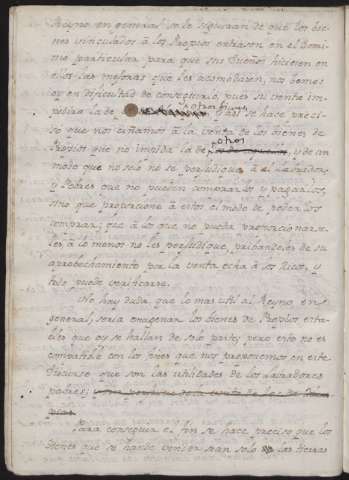 Reyno en general se le siguieran de que los bie-
nes vinculados â los Propios entrasen en el Domi-
nio particular para que sus Dueños hiciesen en
ellos las mejoras que les acomodasen, nos vemos
oy en dificultad de conseguirlo, pues su venta im-
pedira la de y asi se hace preci-
so que nos ciñamos â la venta de los bienes de
Propios que no impida la de otros, y de un
modo que no solo no se perjudique â el Labrador,
y Pobres que no pueden comprarlos y pagarlos,
sino que proporcione â estos el modo de poderlos
comprar, que â los que no pueda proporcionarse-
les, â lo menos no les perjudique, pribandoles de su
aprobechamiento por la venta echa â los Ricos, y
todo puede verificarse.
No hay duda, que lo mas util al Reyno en
general, seria enagenar los bienes de Propios esta-
les que oy se hallan de solo pasto; pero esto no es
compatible con los fines que nos proponemos en este
Discurso que son las utilidades de los Labradores
pobres;
Para conseguir el fin se hace preciso que los
bienes que se hayan de vender sean solo las tierras